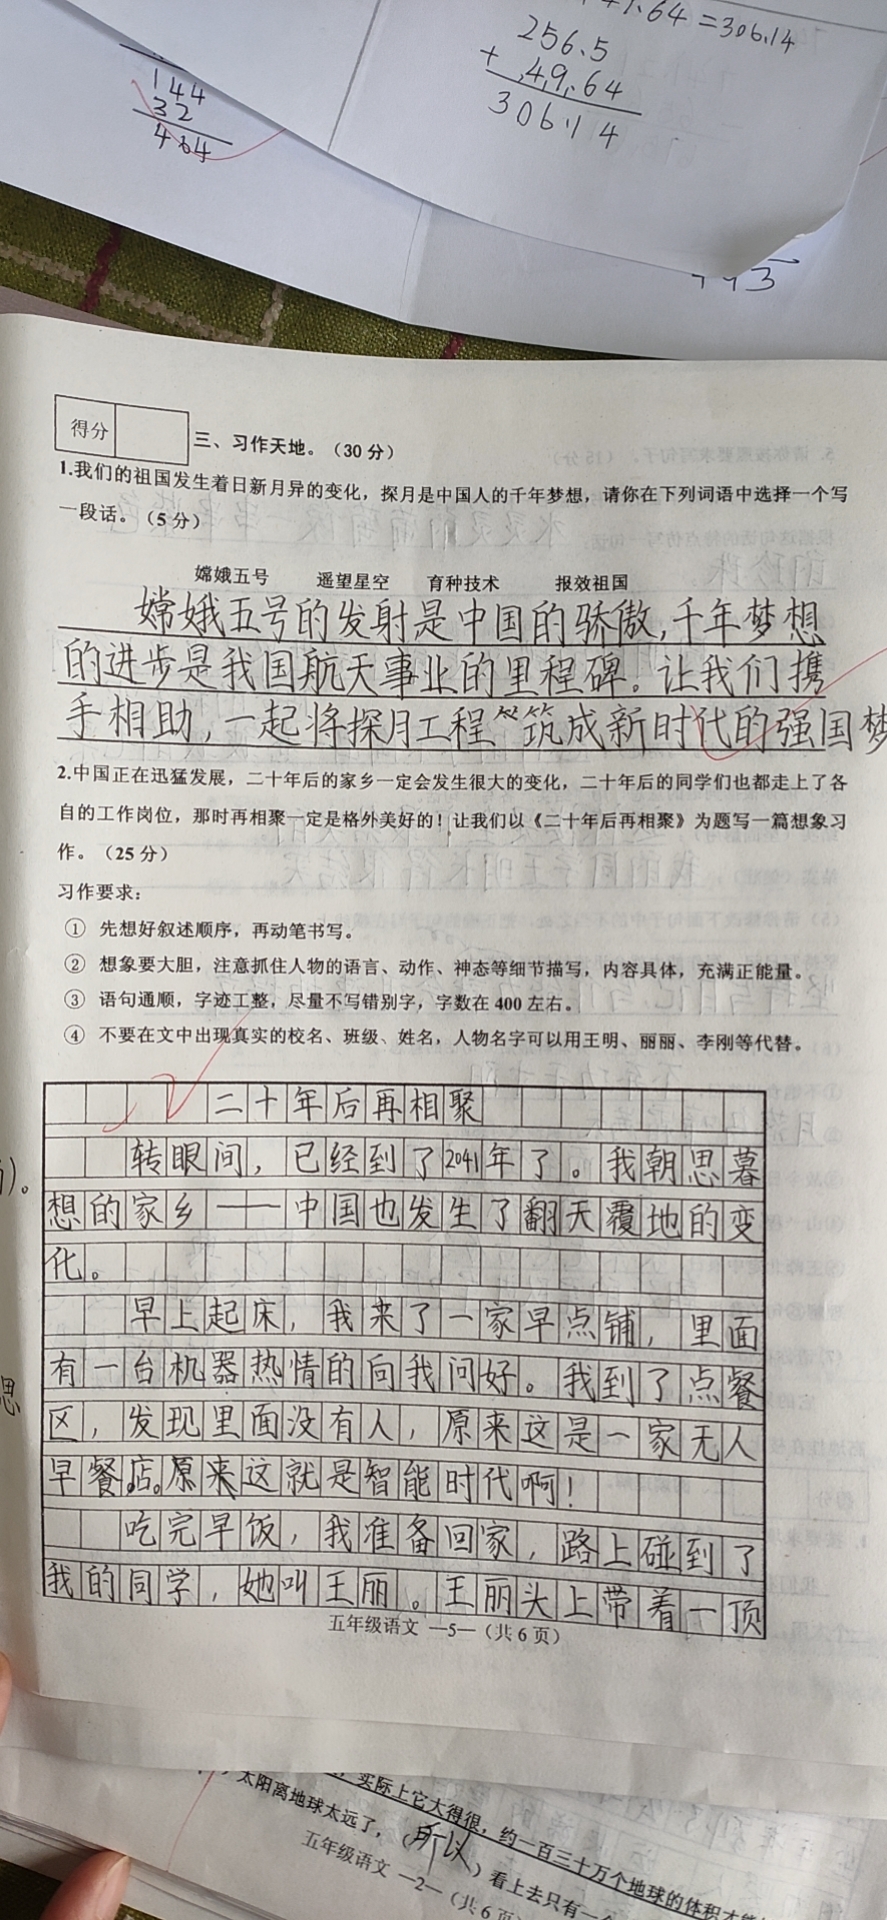 .64=306.14
256.5
+ 49.64
306.14
144
32
464
得分
三、习作天地。（30分）
1.我们的祖国发生着日新月异的变化，探月是中国人的千年梦想，请你在下列词语中选择一个写
一段话。（5分）
嫦娥五号 遥望星空 育种技术 报效祖国
嫦娥五号的发射是中国的骄傲,千年梦想
的进步是我国航天事业的里程碑。让我们携
手相助,一起将探月工程筑成新时代的强国梦
2.中国正在迅猛发展，二十年后的家乡一定会发生很大的变化，二十年后的同学们也都走上了各
自的工作岗位，那时再相聚一定是格外美好的！让我们以《二十年后再相聚》为题写一篇想象习
作。（25分）
习作要求：
① 先想好叙述顺序，再动笔书写。
② 想象要大胆，注意抓住人物的语言、动作、神态等细节描写，内容具体，充满正能量。
③ 语句通顺，字迹工整，尽量不写错别字，字数在400左右。
④ 不要在文中出现真实的校名、班级、姓名，人物名字可以用王明、丽丽、李刚等代替。
二十年后再相聚
转眼间，已经到了2041年了。我朝思暮
想的家乡——中国也发生了翻天覆地的变
化。
早上起床，我来了一家早点铺，里面
有一台机器热情的向我问好。我到了点餐
区，发现里面没有人，原来这是一家无人
早餐店。原来这就是智能时代啊！
吃完早饭，我准备回家，路上碰到了
我的同学，她叫王丽。王丽头上带着一顶
五年级语文 —5—（共6页）
思
实际上它大得很，约一百三十万个地球的体积才能
太阳离地球太远了，（所以）看上去只有一
五年级语文 —2—（共6页